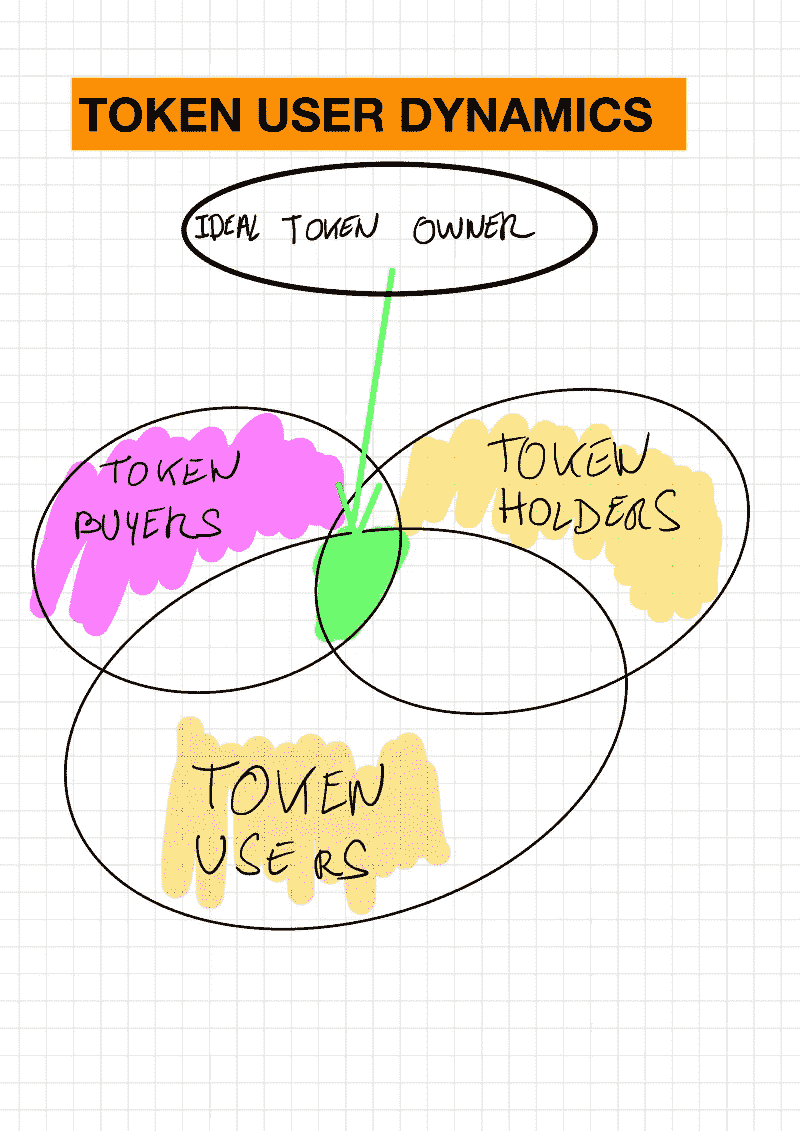 TOKEN USER DYNAMICS
IDEAL TOKEN OWNER
TOKEN
BUYERS
TOKEN
HOLDERS
TOKEN
USERS